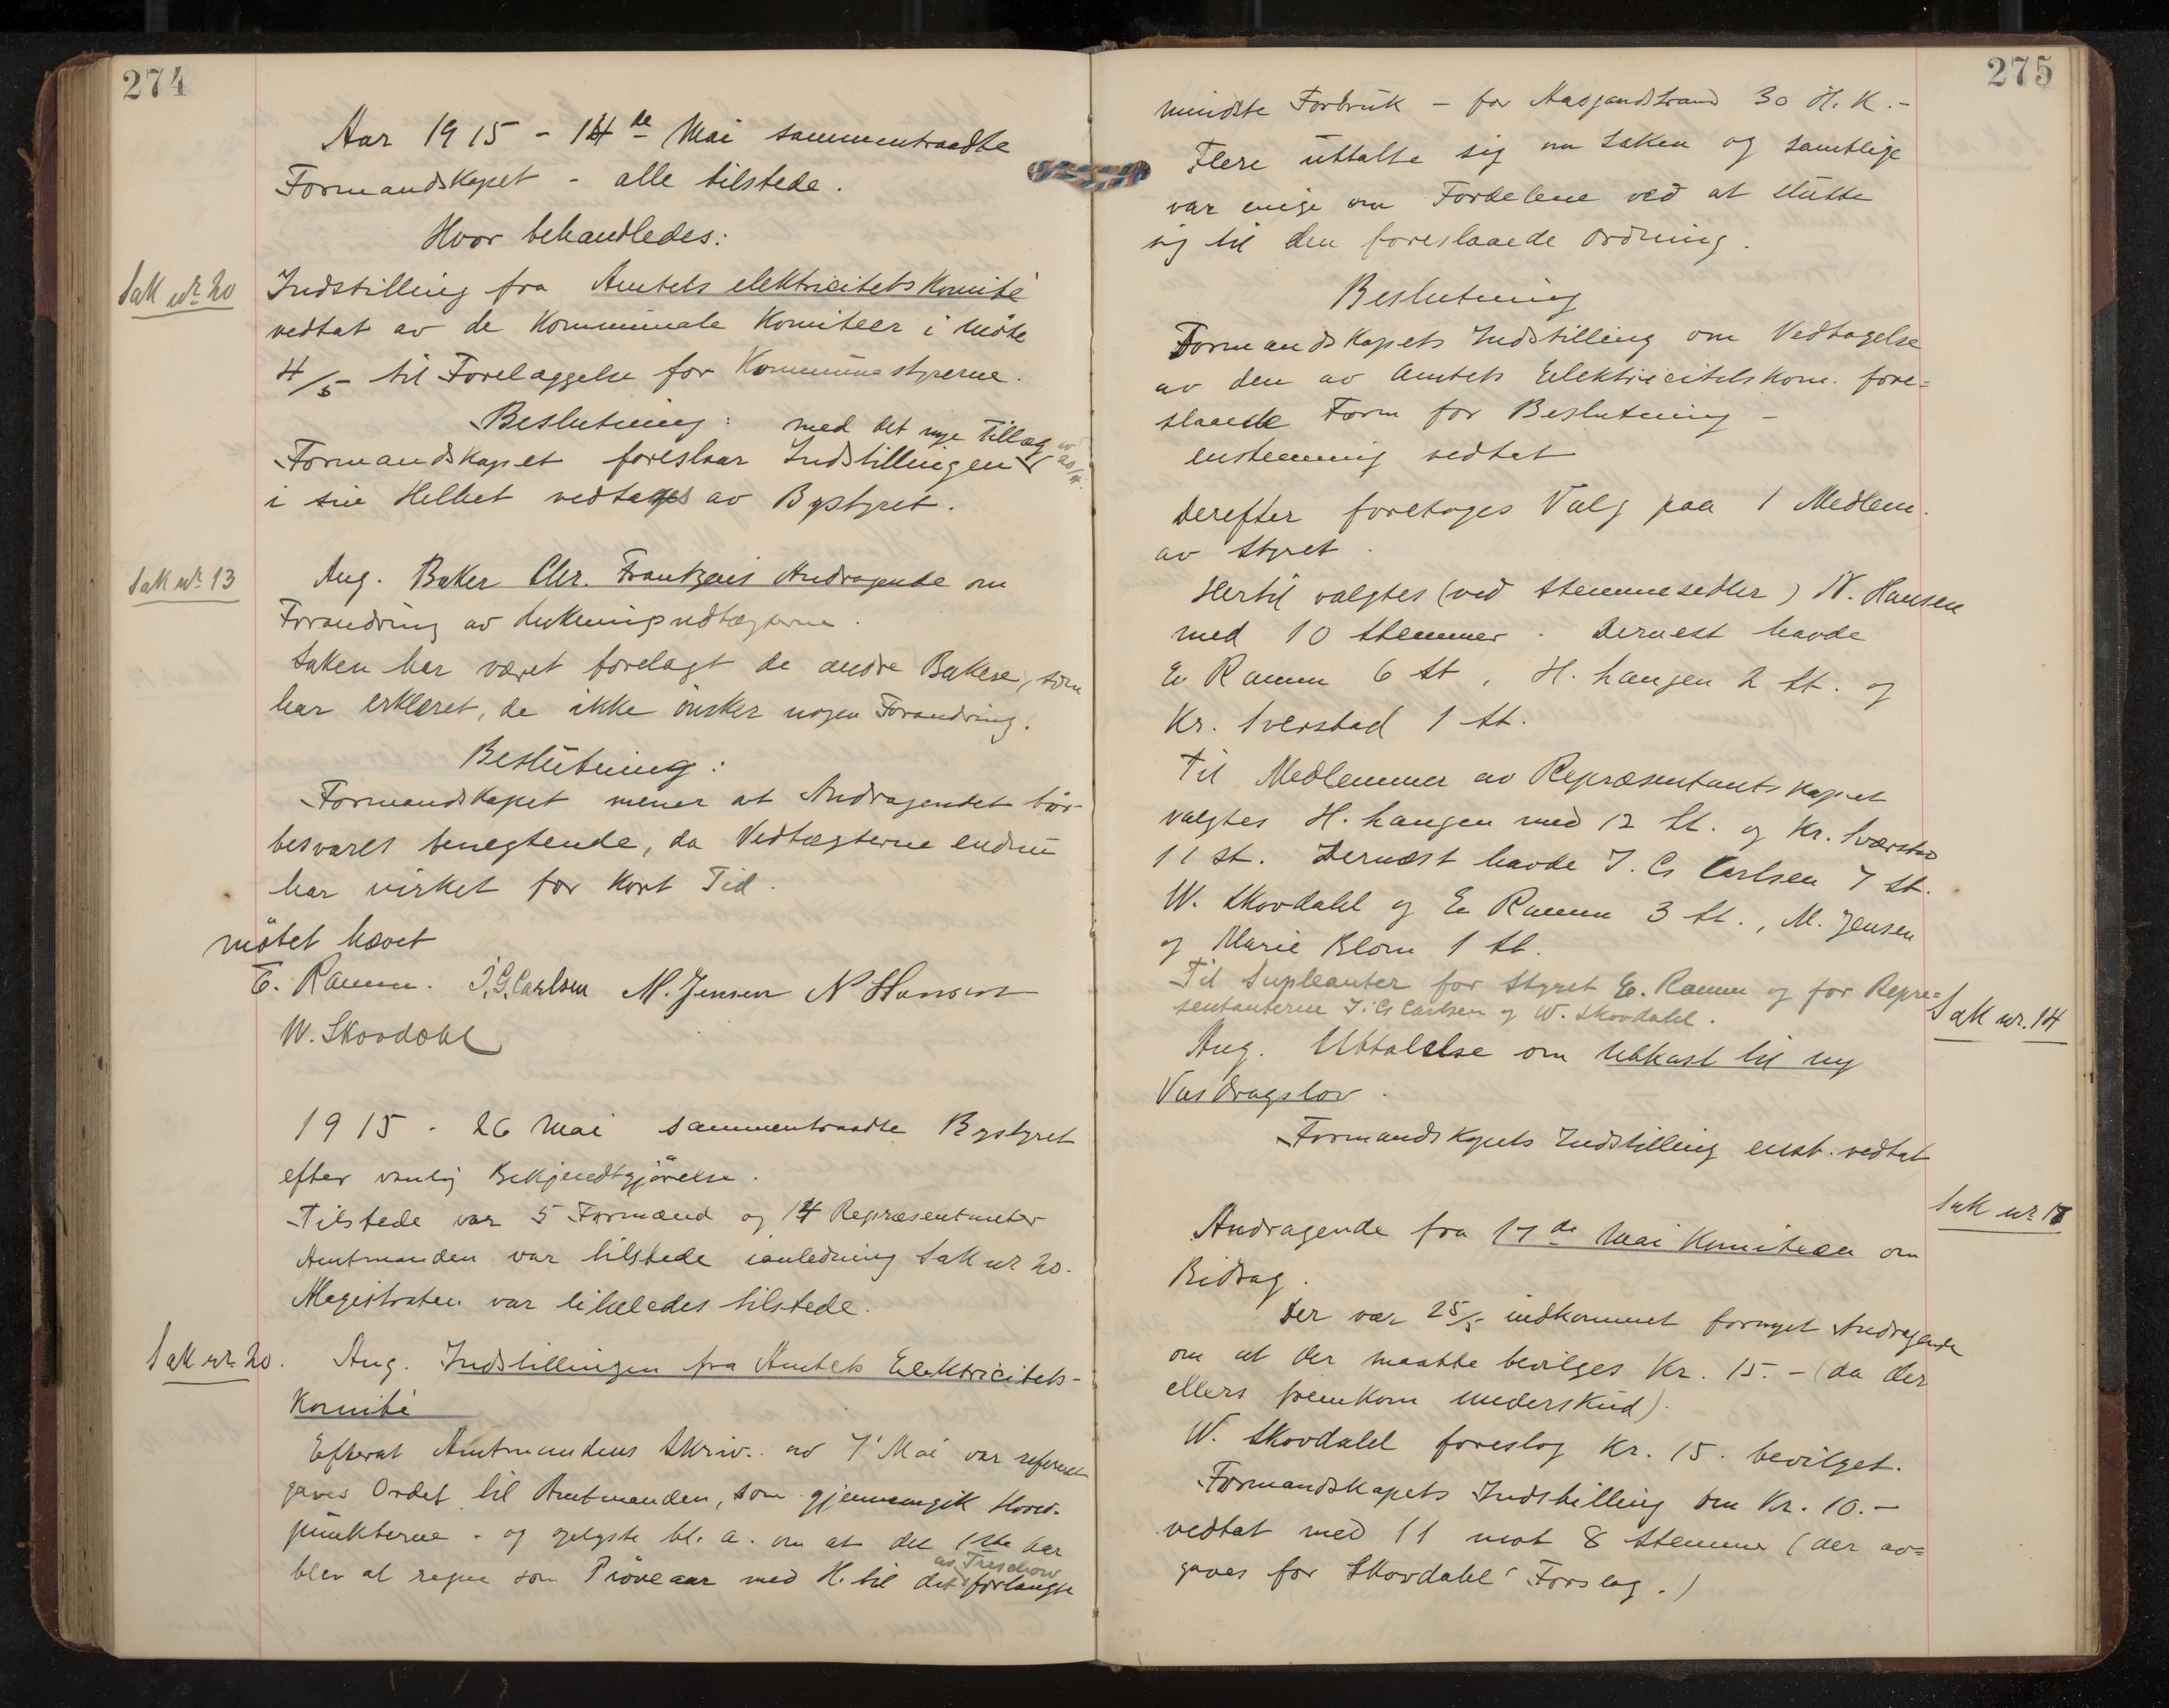 274
Aar 1915 - 14de Mai sammentraadte
Formandskapet - alle tilstede.
Hvor behandledes:
Sak nr 20
Indstilling fra Amtets elektricitetskomité
vedtat av de kommunale komiteer i möte
4/5 til Forelæggelse for Kommunestyrerne.
Beslutning: med det nye Tillæg
Formandskapet foreslaar Indstillingen
i sin Helhet vedtages av Bystyret.
Sak nr 13
Ang. Baker Chr. Frantzens Andragende om
Forandring av Lukningsvedtægterne.
Saken har været forelagt de andre Bakere, som
har erklæret, de ikke önsker nogen Forandring.
Beslutning:
Formandskapet mener at Andragendet bör
besvares benegtende, da Vedtægterne endnu
har virket for kort Tid.
mötet hævet
E. Ramm. J.G. Carlsen M. Jensen N Hansen
W. Skovdahl
1915 - 26 Mai sammentraadte Bystyret
efter vanlig Bekjendtgjörelse.
Tilstede var 5 Formænd og 14 Repræsentanter
Amtmanden var tilstede ianledning Sak nr 20.
Magistraten var likeledes tilstede.
Sak nr 20.
Ang. Indstillingen fra Amtets Elektricitets-
komité
Efterat Amtmandens Skriv. av 7 Mai var referert
gaves Ordet til Amtmanden, som gjennemgik Hoved-
punkterne - og oplyste bl. a. om at det 1ste Aar
blev at regne som Pröveaar med H. til det av Treschow forlangte
275
mindste Forbruk - for Aasgaardstrand 30 H.K.-
Flere uttalte sig om Saken og samtlige
var enige om Fordelene ved at slutte
sig til den foreslaaede Ordning.
Beslutning
Formandskapets Indstilling om Vedtagelse
av den av Amtets Elektricitetskom. fore=
slaaede Form for Beslutning -
enstemmig vedtat
Derefter foretoges Valg paa 1 Medlem.
av Styret.
Hertil valgtes (ved Stemmesedler) N. Hansen
med 10 Stemmer. Dernest havde
E. Ramm 6 St, H. Langen 2 St. og
Kr. Sverstad 1 St.
Til Medlemmer av Repræsentantskapet
valgtes H. Langen med 12 St. og Kr. Sværstad
11 St. Dernæst havde J. G Carlsen 7 St.
W. Skovdahl og E Ramm 3 St., M. Jensen
og Marie Blom 1 St.
Til Supleanter for Styret E. Ramm og for Repre=
sentanterne J. G Carlsen og W. Skovdahl.
Sak nr. 14
Ang. Uttalelse om Utkast til ny
Vasdragslov.
Formandskapets Indstilling enst. vedtat
Sak nr 18
Andragende fra 17de Mai Komiteen om
Bidrag.
Der var 25/5 indkommet fornyet Andragende
om at der maatte bevilges Kr. 15.- (da der
ellers fremkom Underskud).
W. Skovdahl foreslog Kr. 15. bevilget.
Formandskapets Indstilling om Kr. 10.-
vedtat med 11 mot 8 Stemmer (der av=
gaves for Skovdahls Forslag.)